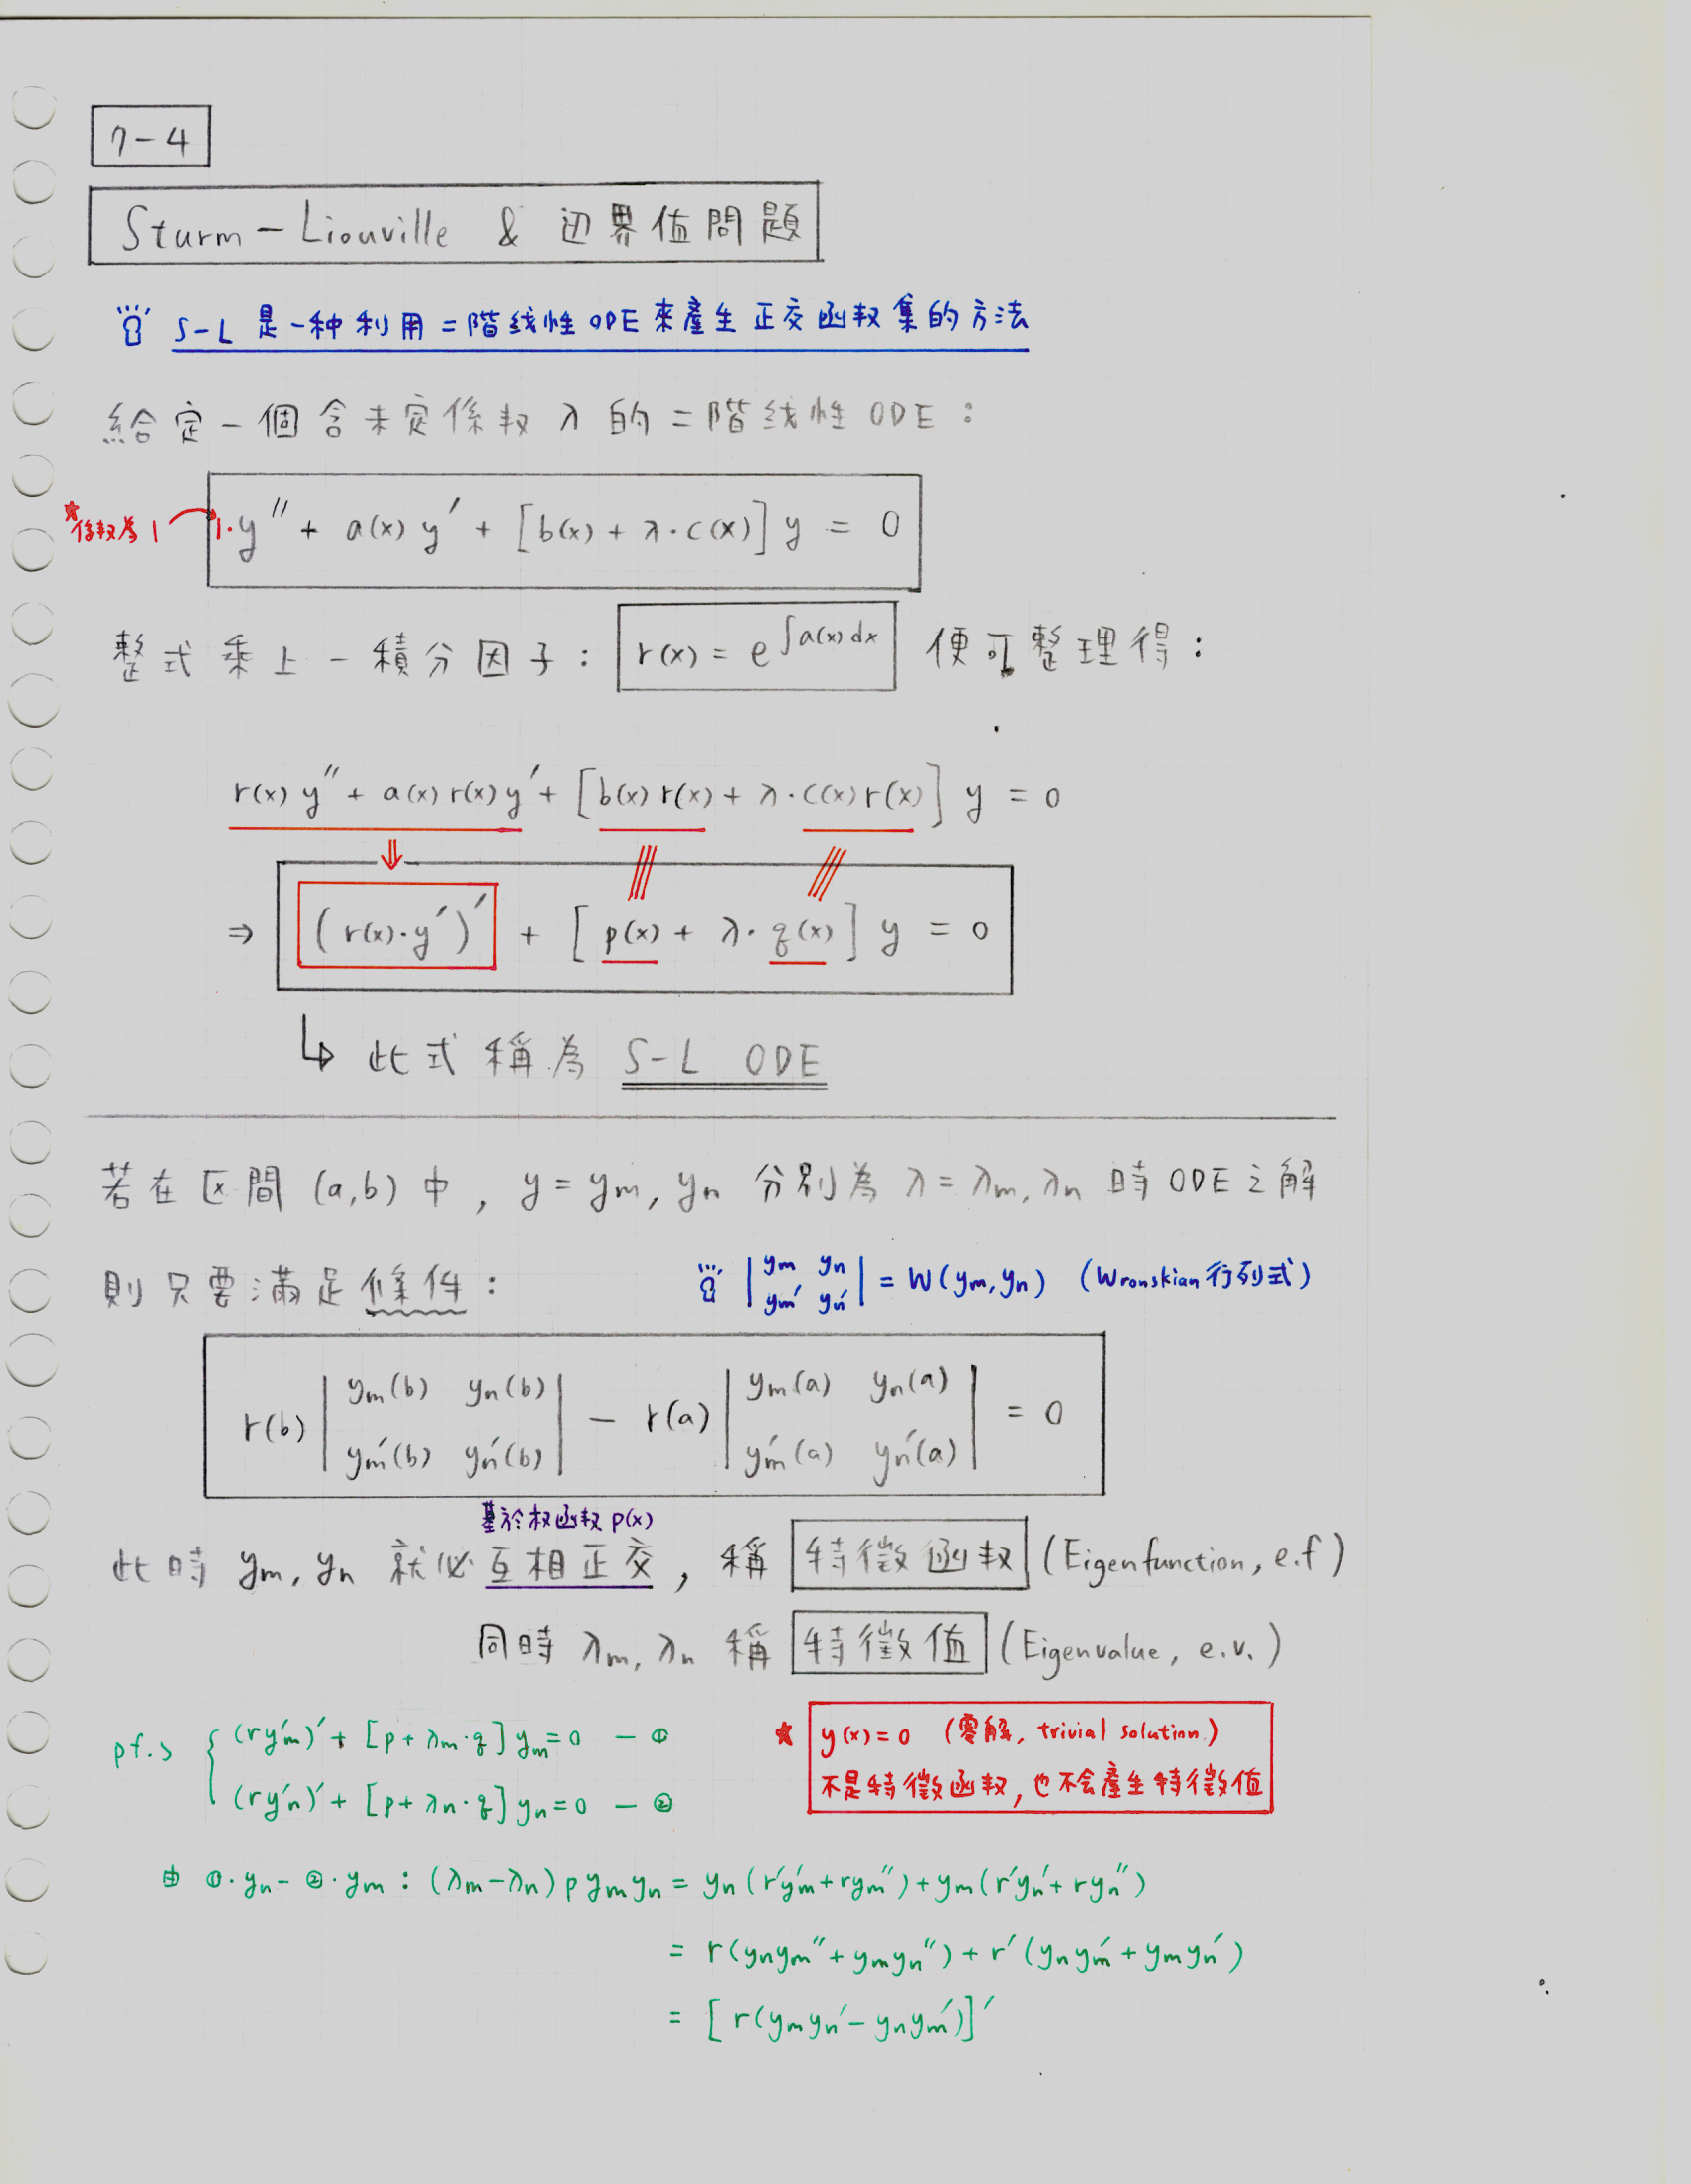 7-4
Sturm-Liouville & 边界值問題
S-L 是一种利用二階线性ODE來產生正交函数集的方法
給定一個含未定係数 λ 的二階线性 ODE：
係数為 1
1·y'' + a(x) y' + [b(x) + λ·c(x)] y = 0
整式乘上一積分因子：r(x) = e^{∫a(x)dx} 便可整理得：
r(x) y'' + a(x) r(x) y' + [b(x) r(x) + λ·c(x) r(x)] y = 0
⇒ (r(x)·y')' + [p(x) + λ·q(x)] y = 0
↳ 此式稱為 S-L ODE
若在区間 (a,b) 中，y = ym, yn 分別為 λ = λm, λn 時 ODE 之解
則只要滿足條件：
|ym yn; ym' yn'| = W(ym, yn) (Wronskian 行列式)
r(b) |ym(b) yn(b); ym'(b) yn'(b)| − r(a) |ym(a) yn(a); ym'(a) yn'(a)| = 0
基於权函数 p(x)
此時 ym, yn 就必互相正交，稱 特徵函数 (Eigenfunction, e.f)
同時 λm, λn 稱 特徵值 (Eigenvalue, e.v.)
pf.> { (rym')' + [p + λm·q] ym = 0 — ①
(ryn')' + [p + λn·q] yn = 0 — ②
★ y(x) = 0 (零解, trivial solution)
不是特徵函数，也不会產生特徵值
由 ①·yn − ②·ym : (λm − λn) p ym yn = yn (r'ym' + rym'') + ym (r'yn' + ryn'')
= r(ynym'' + ymyn'') + r'(ynym' + ymyn')
= [r(ymyn' − ynym')]'